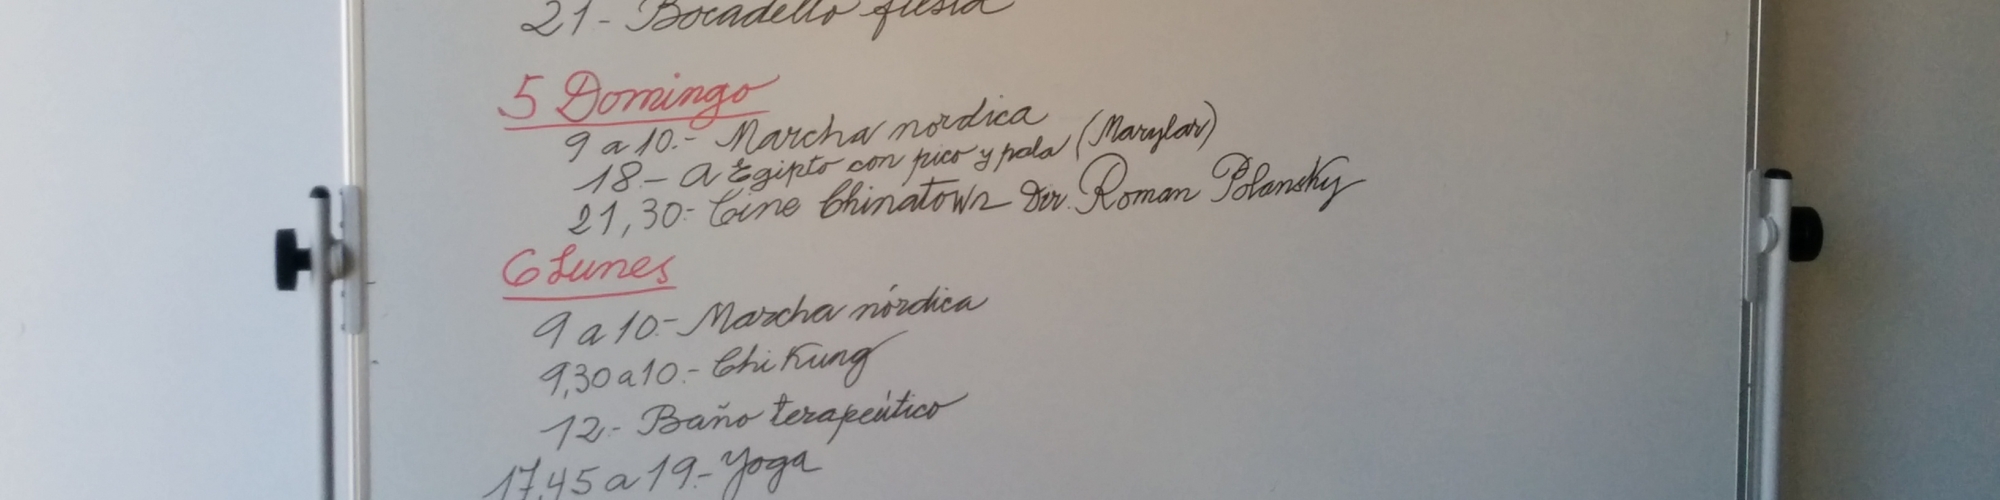 21- Bocadello fiesta
5 Domingo
9 a 10.- Marcha nordica
18.- a Egipto con pico y pala (Marylar)
21,30- Cine Chinatown Dir. Roman Polansky
6 Lunes
9 a 10- Marcha nórdica
9,30 a 10.- Chi Kung
12- Baño terapeútico
17,45 a 19.- Yoga